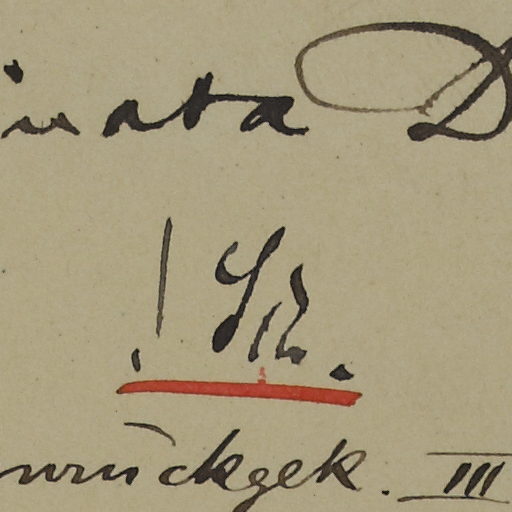 inata D
! Sr.
urückgek. III